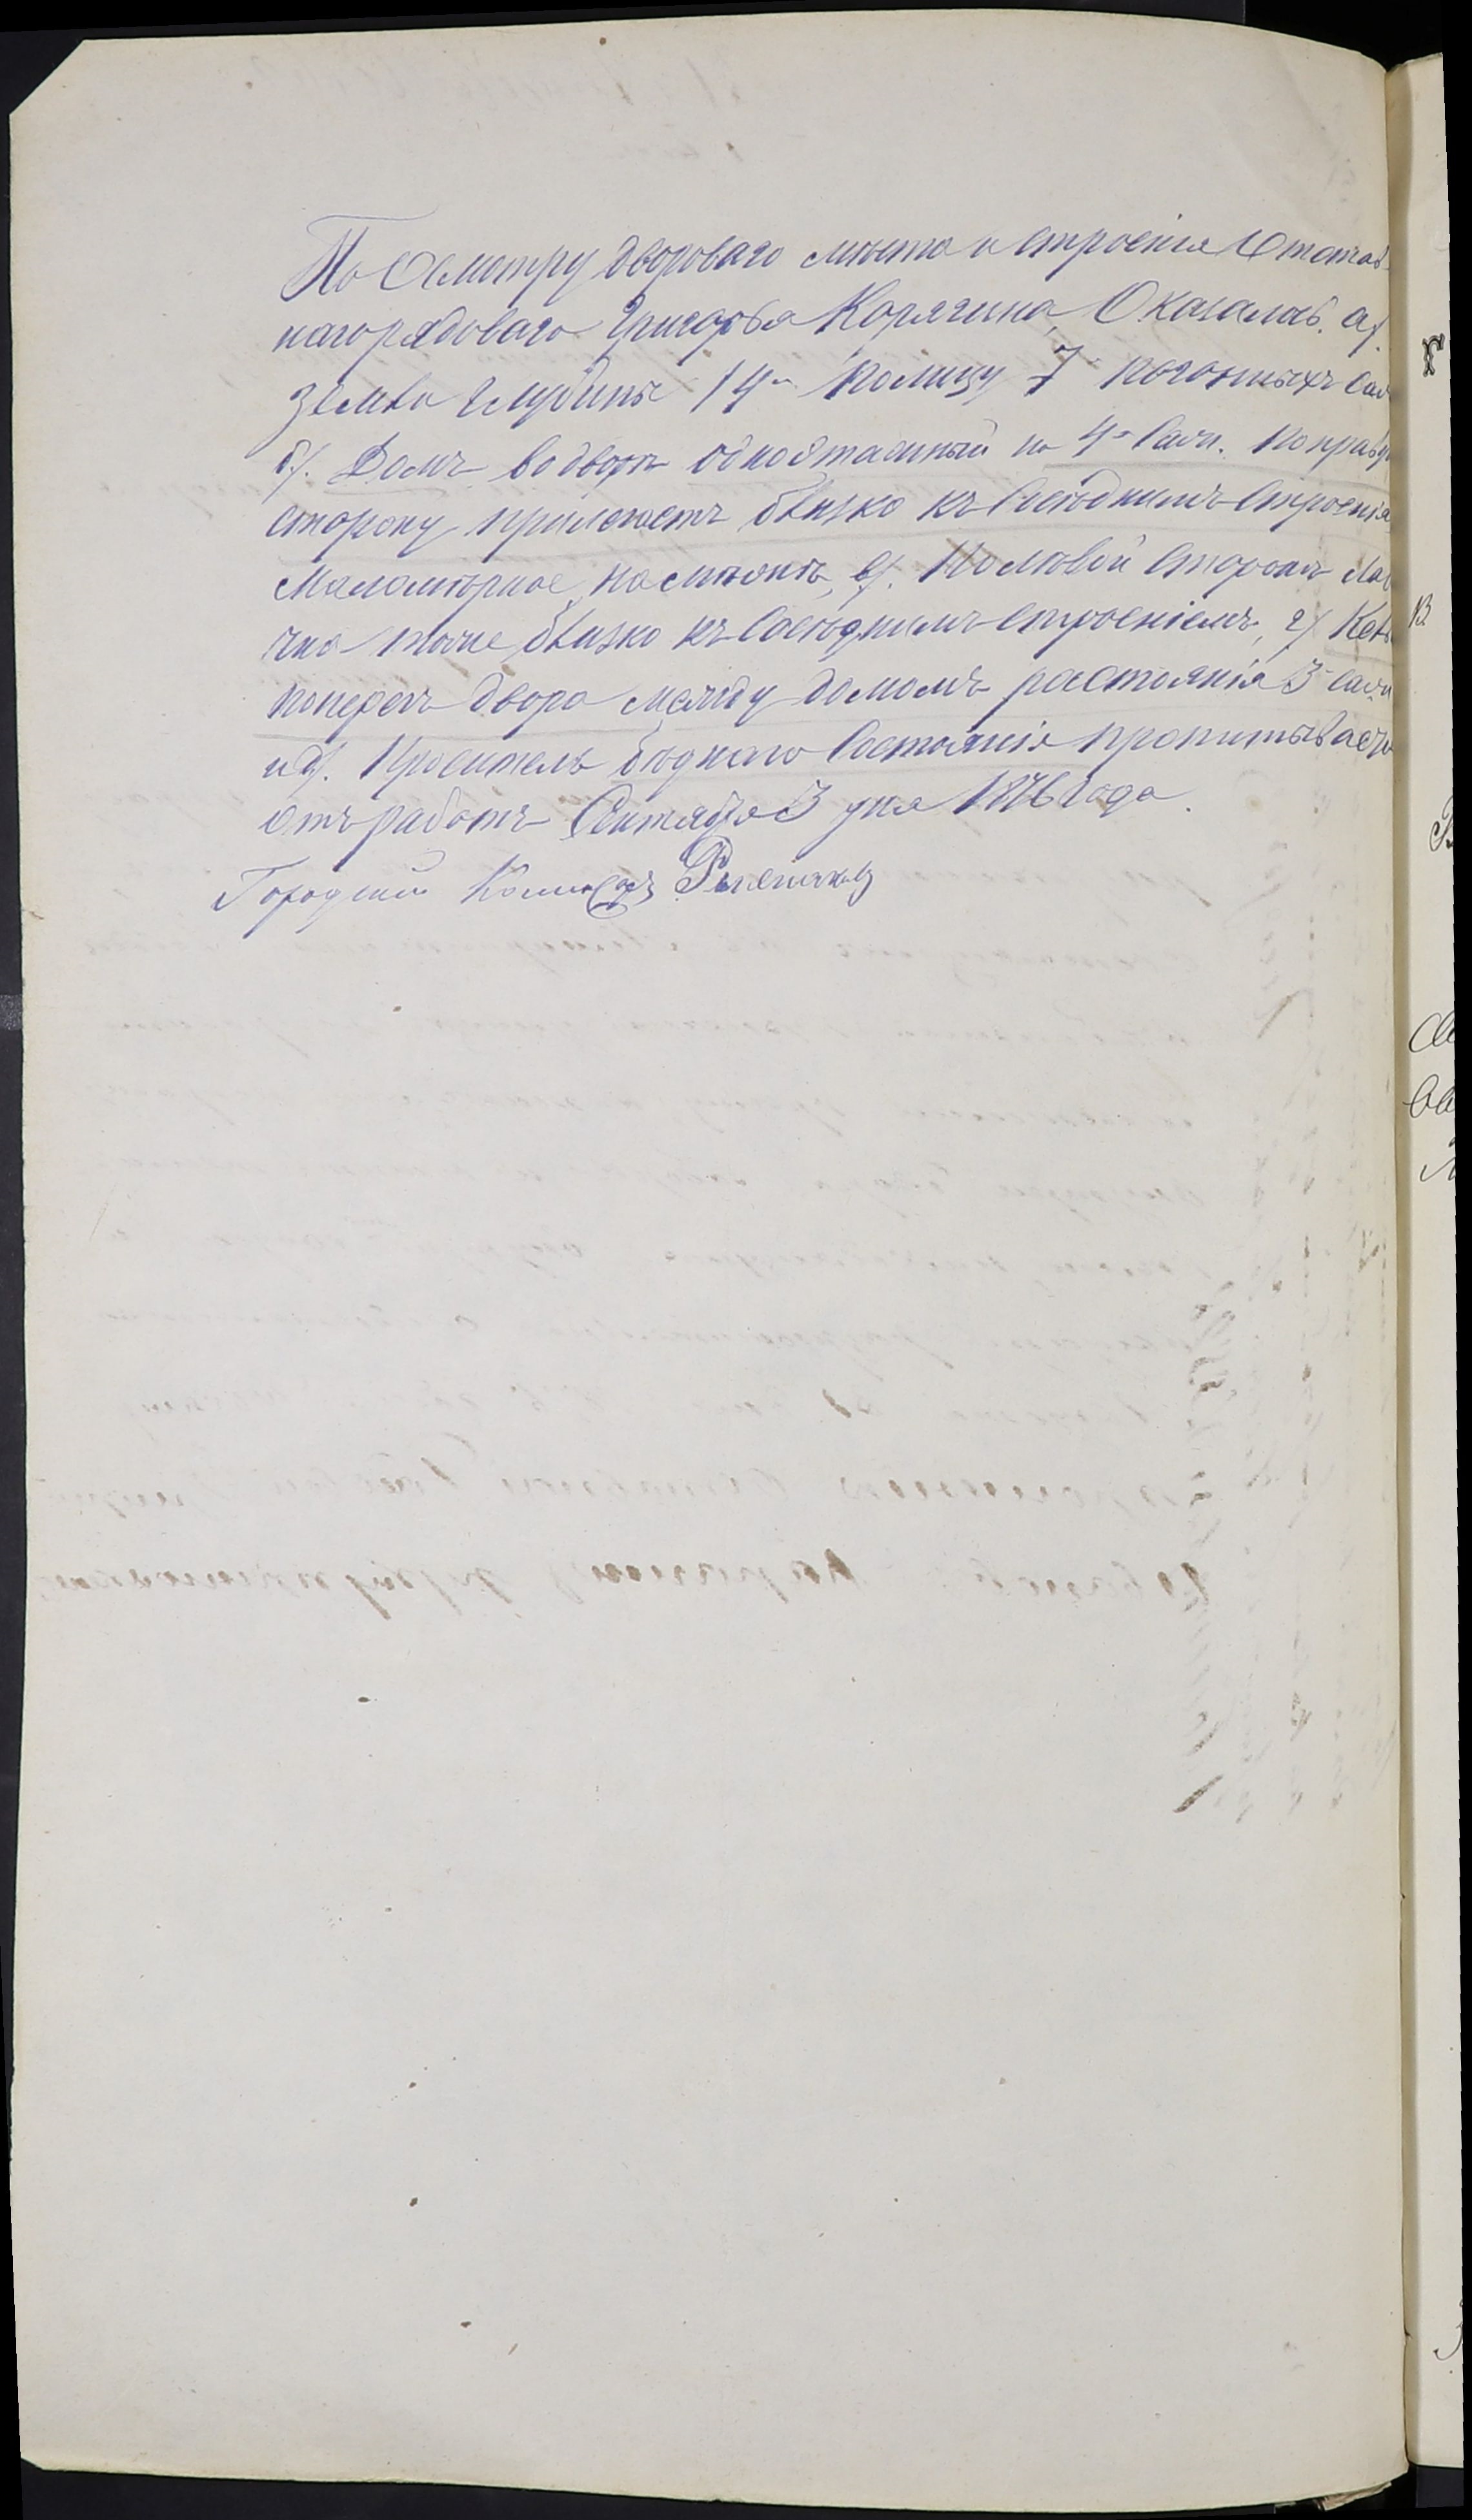 По Осмотру дворового места и строения Отстав-
наго рядоваго Григорья Корягина, Оказалась. а/.
земли глубины 14ᵐ по лицу 7 погонныхъ саж
б/. Домъ во дворѣ одноэтажный на 4ᵐ Саж. по праву
сторону прилегаетъ близко къ Соседнимъ Строенія
маломѣрное на мѣстѣ, в/. По лѣвой Сторонѣ
тоже близко къ Соседнимъ строеніемъ, г/.
поперегъ двора между домомъ растоянія 3 саж
и д/. Проситель бѣднаго Состоянія пропитывается
отъ работъ Сентября 3 дня 1876 года.
Городской Комисаръ